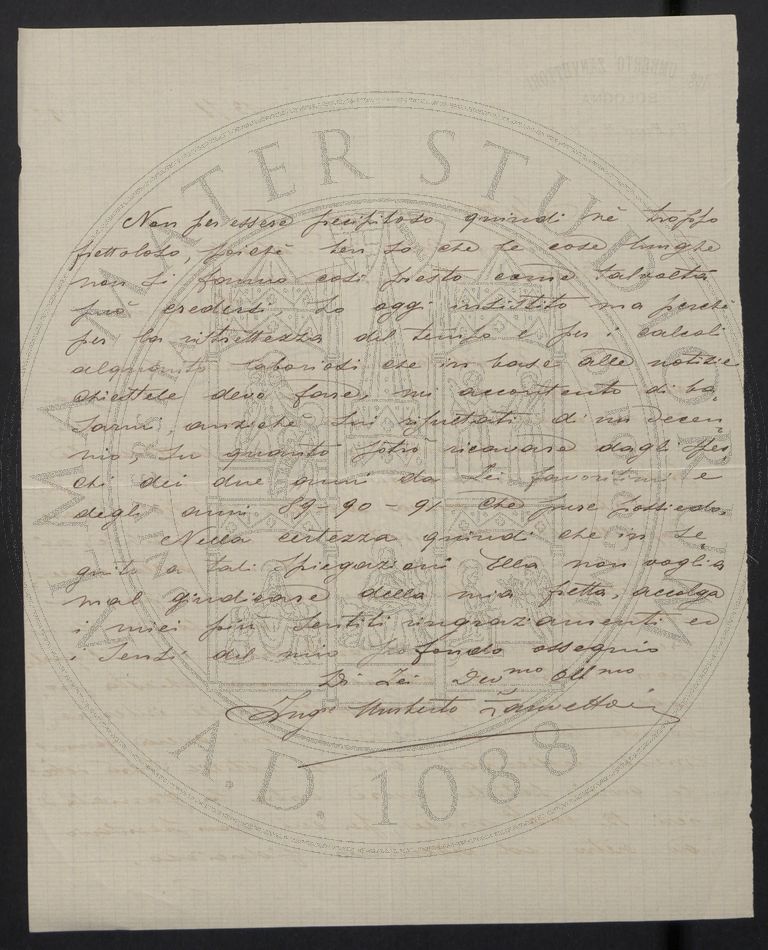 Non per essere precipitoso quindi nè troppo
frettoloso, poichè ben so che le cose lunghe
non si fanno così presto come talvolta
può credersi ho oggi insistito ma perchè
per la ristrettezza del tempo e per i calcoli
alquanto laboriosi che in base alle notizie
chiestele devo fare, mi accontento di ba
sarmi, anzichè sui risultati di un decen
nio, su quanto potrò ricavare dagli
chi dei due anni da Lei favoritimi e
degli anni 89-90-91 che pure possiedo.
Nella certezza quindi che in se
guito a tali spiegazioni Ella non voglia
mal giudicare della mia fretta, accolga
i miei più sentiti ringraziamenti ed
i sensi del mio profondo ossequio
Di Lei Devmo Obbmo
Ingre Umberto Zanvettori
ING. UMBERTO ZANVETTORI
BOLOGNA
ALMA MATER STUDIORUM
A.D. 1088